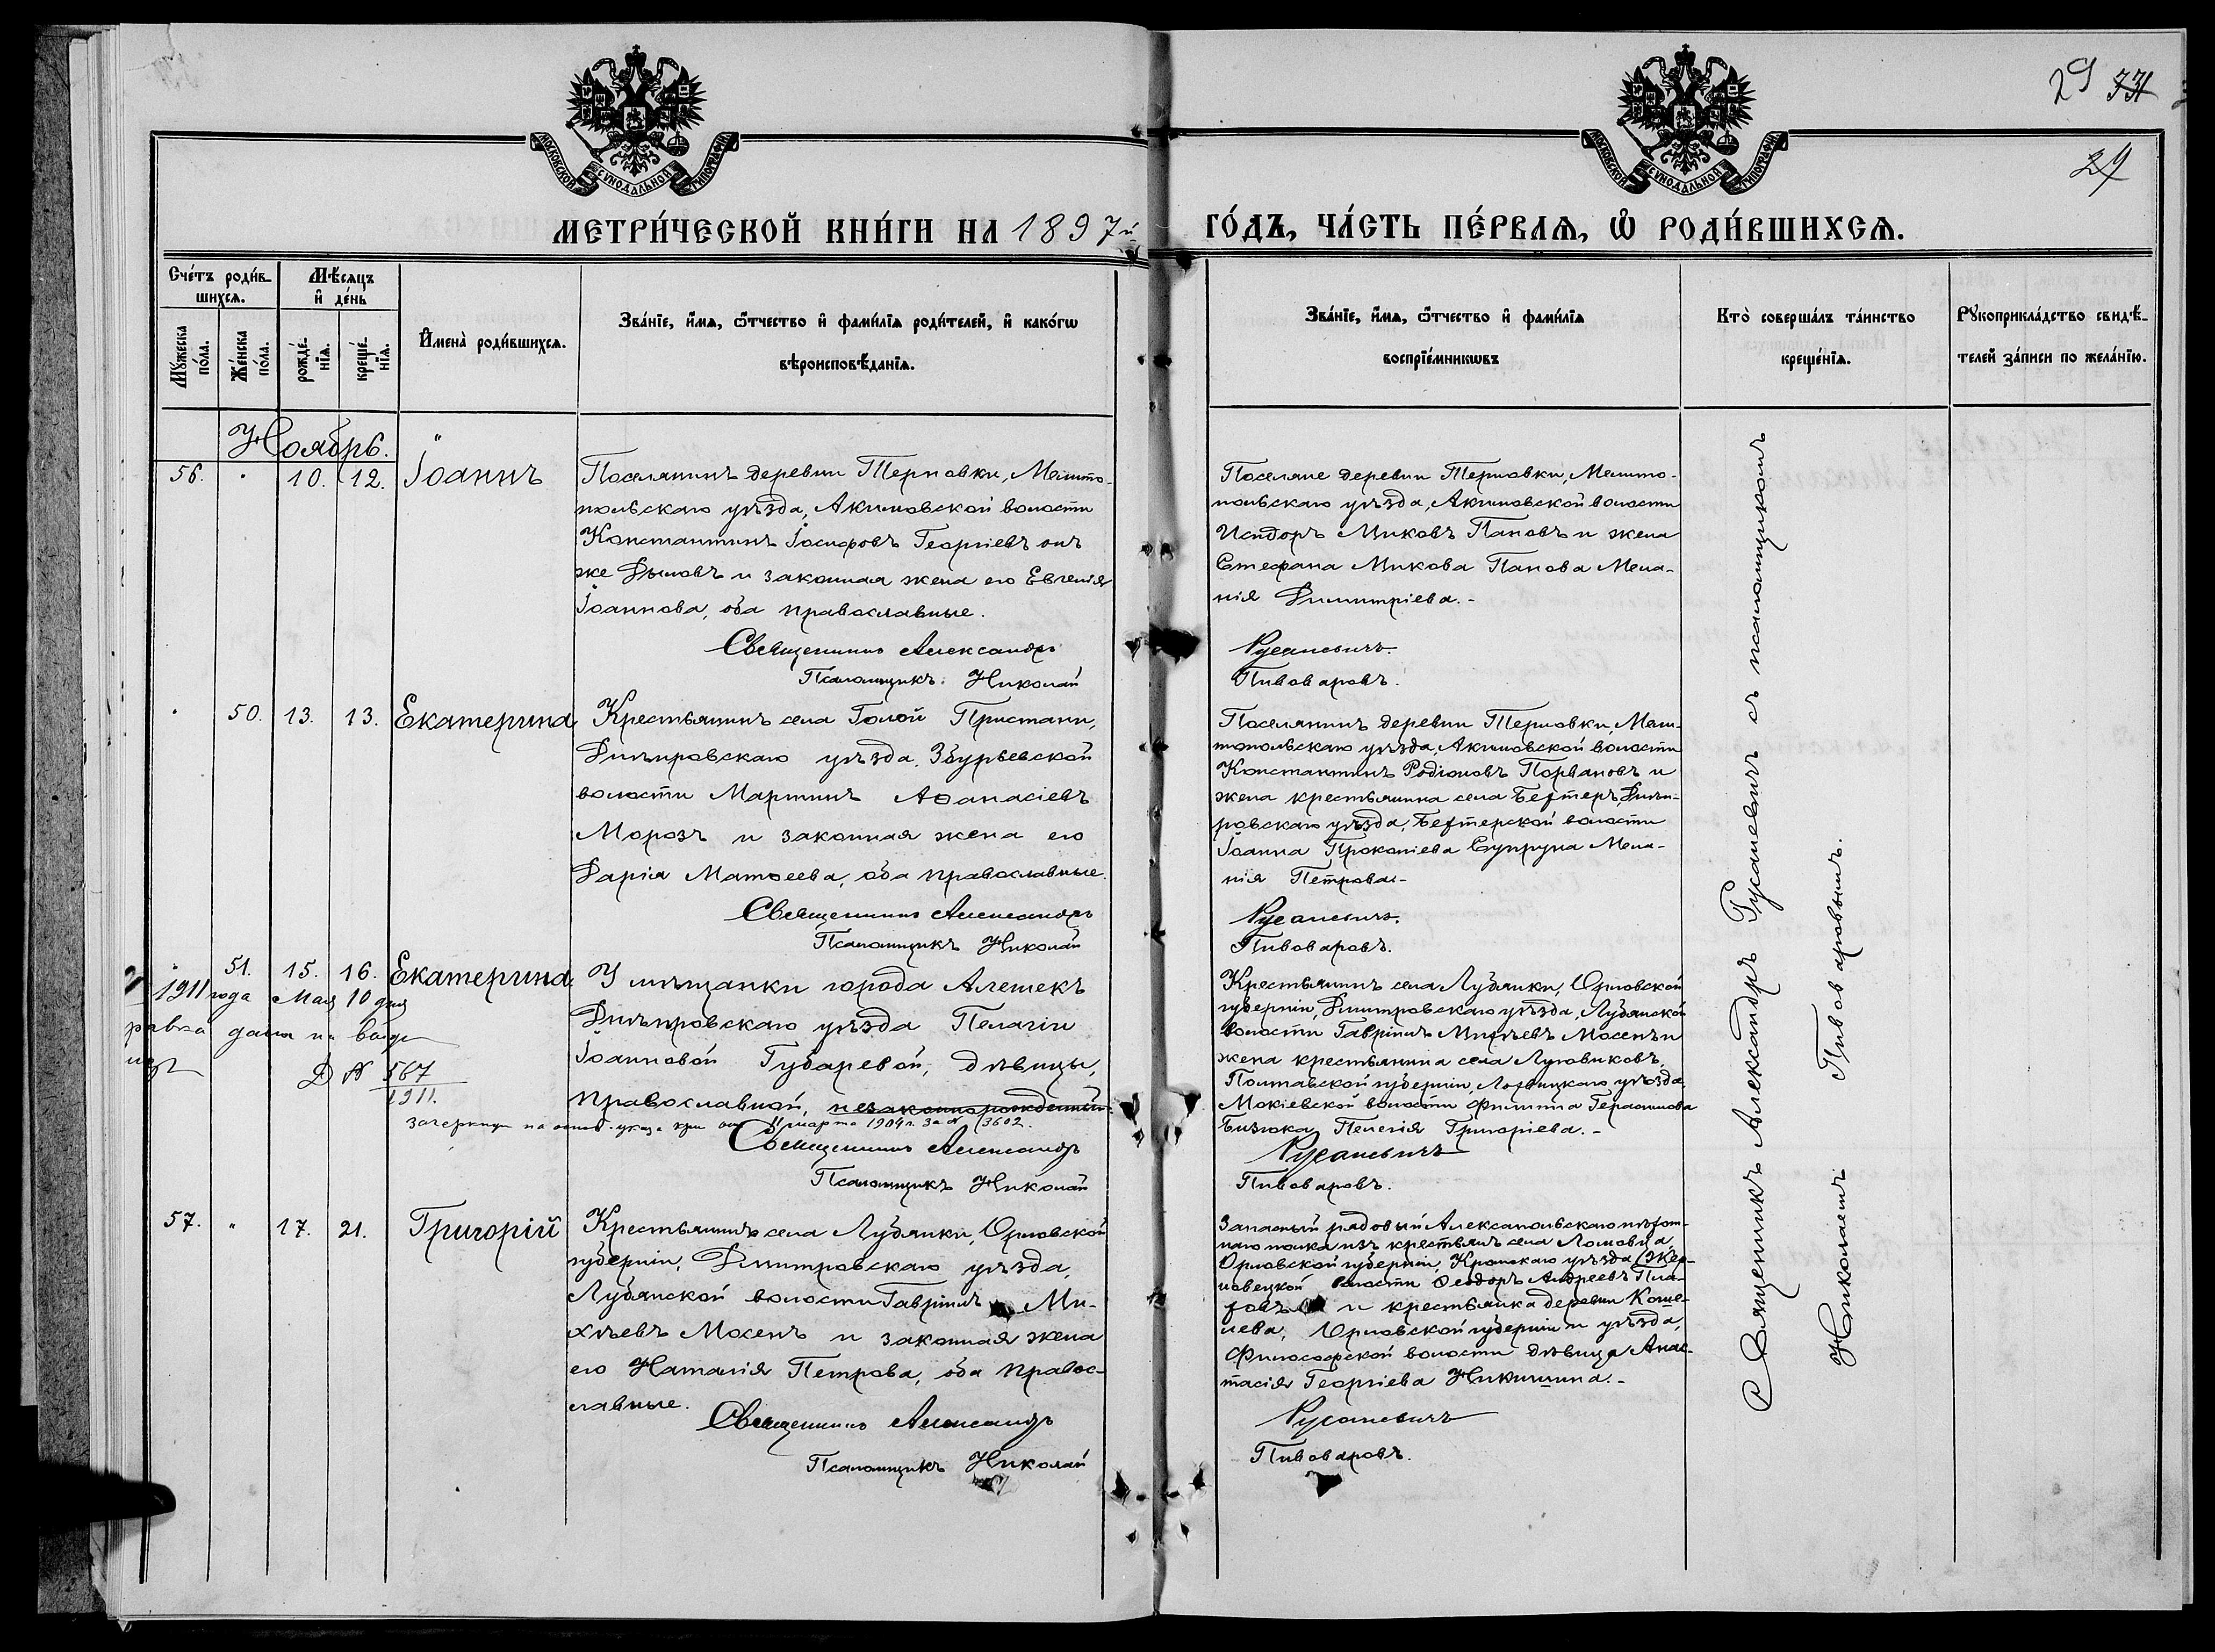 29
29
МЕТРИ́ЧЕСКОЙ КНИ́ГИ НА 1897й
ГО́ДЪ, ЧА́СТЬ ПЕ́РВАѦ, Ѡ РОДИ́ВШИХСѦ.
МОСКОВСКОЙ СѴНОДАЛЬНОЙ ТИПОГРАФІИ
МОСКОВСКОЙ СѴНОДАЛЬНОЙ ТИПОГРАФІИ
Сче́тъ роди́вшихсѧ.
Мꙋжеска по́ла.
Же́нска по́ла.
Мѣ́сѧцъ и҆ де́нь
рожде́нїѧ.
креще́нїѧ.
И҆мена̀ роди́вшихсѧ.
Зва́нїе, и҆́мѧ, ѻ҆́тчество и҆ фами́лїѧ роди́телей, и҆ како́гѡ
вѣроисповѣ́данїѧ.
Зва́нїе, и҆́мѧ, ѻ҆́тчество и҆ фами́лїѧ
воспрїе́мникѡвъ
Кто̀ соверша́лъ та́инство
креще́нїѧ.
Рꙋкоприкла́дство свидѣ́-
телей за́писи по жела́нїю.
Ноябрь.
56. " 10. 12. Іоаннъ
Поселянинъ деревни Терновки, Мелито-
польскаго уѣзда, Акимовской волости
Константинъ Іосифовъ Георгіевъ онъ
же Дымовъ и законная жена его Евгенія
Іоаннова, оба православные.
Священникъ Александръ
Псаломщикъ Николай
Поселяне деревни Терновки, Мелито-
польскаго уѣзда, Акимовской волости
Исидоръ Миковъ Пановъ и жена
Стефана Микова Панова Мела-
нія Димитріева.-
Русаневичъ.
Пивоваровъ.
" 50. 13. 13. Екатерина
Крестьянинъ села Голой Пристани,
Днѣпровскаго уѣзда, Збурьевской
волости Мартинъ Аѳанасіевъ
Морозъ и законная жена его
Дарія Матѳеева, оба православные.
Священникъ Александръ
Псаломщикъ Николай
Поселянинъ деревни Терновки, Мели-
топольскаго уѣзда, Акимовской волости
Константинъ Родіоновъ Порвановъ и
жена крестьянина села Бехтеръ, Днѣп-
ровскаго уѣзда, Бехтерской волости
Іоанна Прокопіева Супруна Мела-
нія Петрова.-
Русаневичъ.
Пивоваровъ.
" 51. 15. 16. Екатерина
1911 года Мая 10 дня
дана
№ 567
1911.
У мѣщанки города Алешекъ
Днѣпровскаго уѣзда Пелагіи
Іоанновой Губаревой, дѣвицы,
православной, незаконнорожденная.
зачеркнут на основ. указа от 11 марта 1904 г. за № 3602.
Священникъ Александръ
Псаломщикъ Николай
Крестьянинъ села Лубянки, Орловской
губерніи, Дмитровскаго уѣзда, Лубянской
волости Гавріилъ Михѣевъ Мосенъ и
жена крестьянина села Луговиковъ,
Полтавской губерніи, Лохвицкаго уѣзда,
Мокіевской волости Филиппа Герасимова
Бизюка Пелегія Григоріева.-
Русаневичъ
Пивоваровъ.
57. " 17. 21. Григорій
Крестьянинъ села Лубянки, Орловской
губерніи, Дмитровскаго уѣзда,
Лубянской волости Гавріилъ Ми-
хѣевъ Мосенъ и законная жена
его Наталія Петрова, оба правос-
лавные.
Священникъ Александръ
Псаломщикъ Николай
Запасный рядовый Александропольскаго пѣхот-
наго полка изъ крестьянъ села Ломовца,
Орловской губерніи, Кромскаго уѣзда,
волости Ѳеодоръ Андреевъ
и крестьянка деревни Коше-
лева, Орловской губерніи и уѣзда,
Философской волости дѣвица Анас-
тасія Георгіева Никишина.-
Русаневичъ
Пивоваровъ.
Священникъ Александръ Русаневичъ съ псаломщикомъ
Николаемъ Пивоваровымъ.